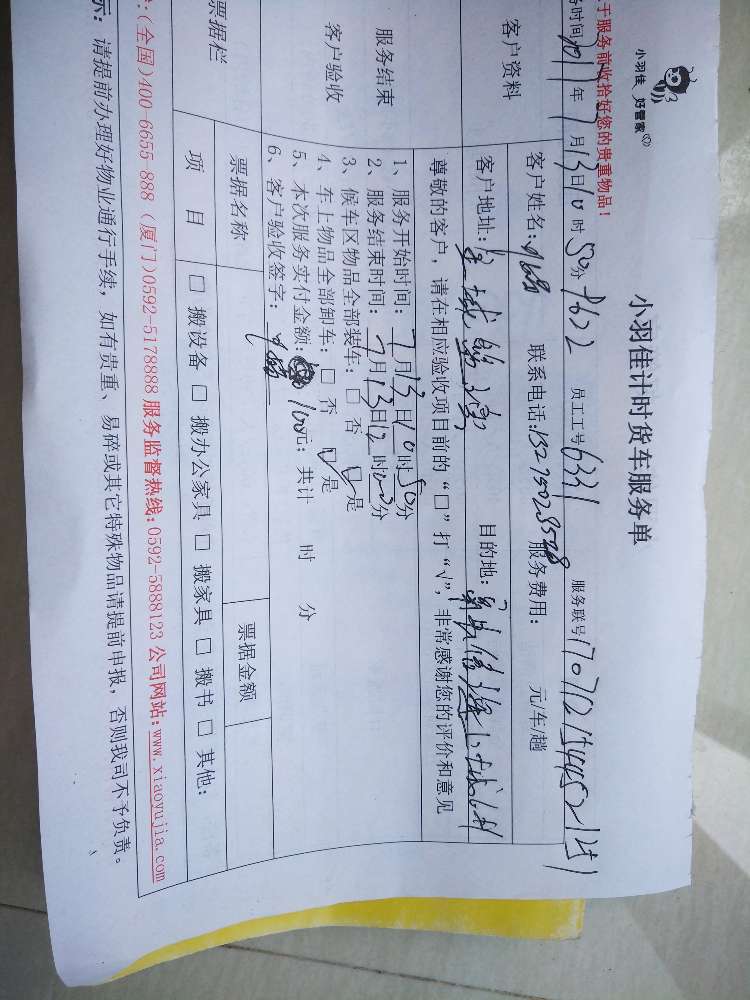 小羽佳 好管家
小羽佳计时货车服务单
于服务前收拾好您的贵重物品!
务时间2017年7月13日10时50分 员工工号6331 服务联号
客户资料
客户姓名: 联系电话: 服务费用: 元/车/趟
客户地址: 目的地:
尊敬的客户,请在相应验收项目前的“□”打“√”,非常感谢您的评价和意见
服务结束
客户验收
1、服务开始时间:7月13日10时50分
2、服务结束时间:7月13日12时00分
3、候车区物品全部装车:□ 否 ☑是
4、车上物品全部卸车:□ 否 ☑是
5、本次服务实付金额: 100元;共计 时 分
6、客户验收签字:
票据栏
票据名称 票据金额
项 目 □ 搬设备 □ 搬办公家具 □ 搬家具 □ 搬书 □ 其他:
:(全国)400-6655 888 (厦门)0592-5178888 服务监督热线:0592-5888123 公司网站:www.xiaoyujia.com
示:请提前办理好物业通行手续,如有贵重、易碎或其它特殊物品请提前申报,否则我司不予负责。